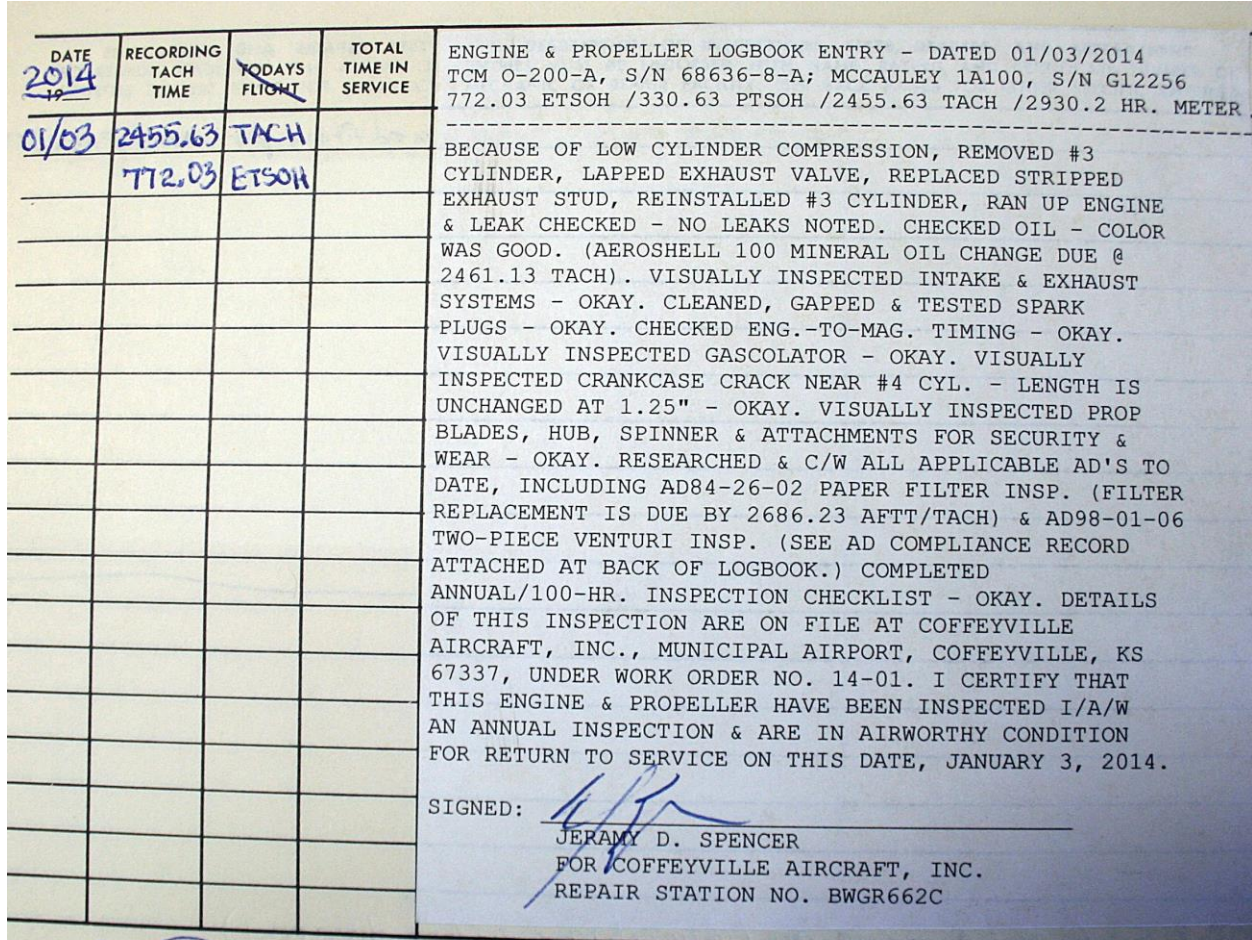 DATE
2014
19
RECORDING
TACH
TIME
TODAYS
FLIGHT
TOTAL
TIME IN
SERVICE
01/03 2455.63 TACH
772.03 ETSOH
ENGINE & PROPELLER LOGBOOK ENTRY - DATED 01/03/2014
TCM O-200-A, S/N 68636-8-A; MCCAULEY 1A100, S/N G12256
772.03 ETSOH /330.63 PTSOH /2455.63 TACH /2930.2 HR. METER
BECAUSE OF LOW CYLINDER COMPRESSION, REMOVED #3
CYLINDER, LAPPED EXHAUST VALVE, REPLACED STRIPPED
EXHAUST STUD, REINSTALLED #3 CYLINDER, RAN UP ENGINE
& LEAK CHECKED - NO LEAKS NOTED. CHECKED OIL - COLOR
WAS GOOD. (AEROSHELL 100 MINERAL OIL CHANGE DUE @
2461.13 TACH). VISUALLY INSPECTED INTAKE & EXHAUST
SYSTEMS - OKAY. CLEANED, GAPPED & TESTED SPARK
PLUGS - OKAY. CHECKED ENG.-TO-MAG. TIMING - OKAY.
VISUALLY INSPECTED GASCOLATOR - OKAY. VISUALLY
INSPECTED CRANKCASE CRACK NEAR #4 CYL. - LENGTH IS
UNCHANGED AT 1.25" - OKAY. VISUALLY INSPECTED PROP
BLADES, HUB, SPINNER & ATTACHMENTS FOR SECURITY &
WEAR - OKAY. RESEARCHED & C/W ALL APPLICABLE AD'S TO
DATE, INCLUDING AD84-26-02 PAPER FILTER INSP. (FILTER
REPLACEMENT IS DUE BY 2686.23 AFTT/TACH) & AD98-01-06
TWO-PIECE VENTURI INSP. (SEE AD COMPLIANCE RECORD
ATTACHED AT BACK OF LOGBOOK.) COMPLETED
ANNUAL/100-HR. INSPECTION CHECKLIST - OKAY. DETAILS
OF THIS INSPECTION ARE ON FILE AT COFFEYVILLE
AIRCRAFT, INC., MUNICIPAL AIRPORT, COFFEYVILLE, KS
67337, UNDER WORK ORDER NO. 14-01. I CERTIFY THAT
THIS ENGINE & PROPELLER HAVE BEEN INSPECTED I/A/W
AN ANNUAL INSPECTION & ARE IN AIRWORTHY CONDITION
FOR RETURN TO SERVICE ON THIS DATE, JANUARY 3, 2014.
SIGNED:
JERAMY D. SPENCER
FOR COFFEYVILLE AIRCRAFT, INC.
REPAIR STATION NO. BWGR662C